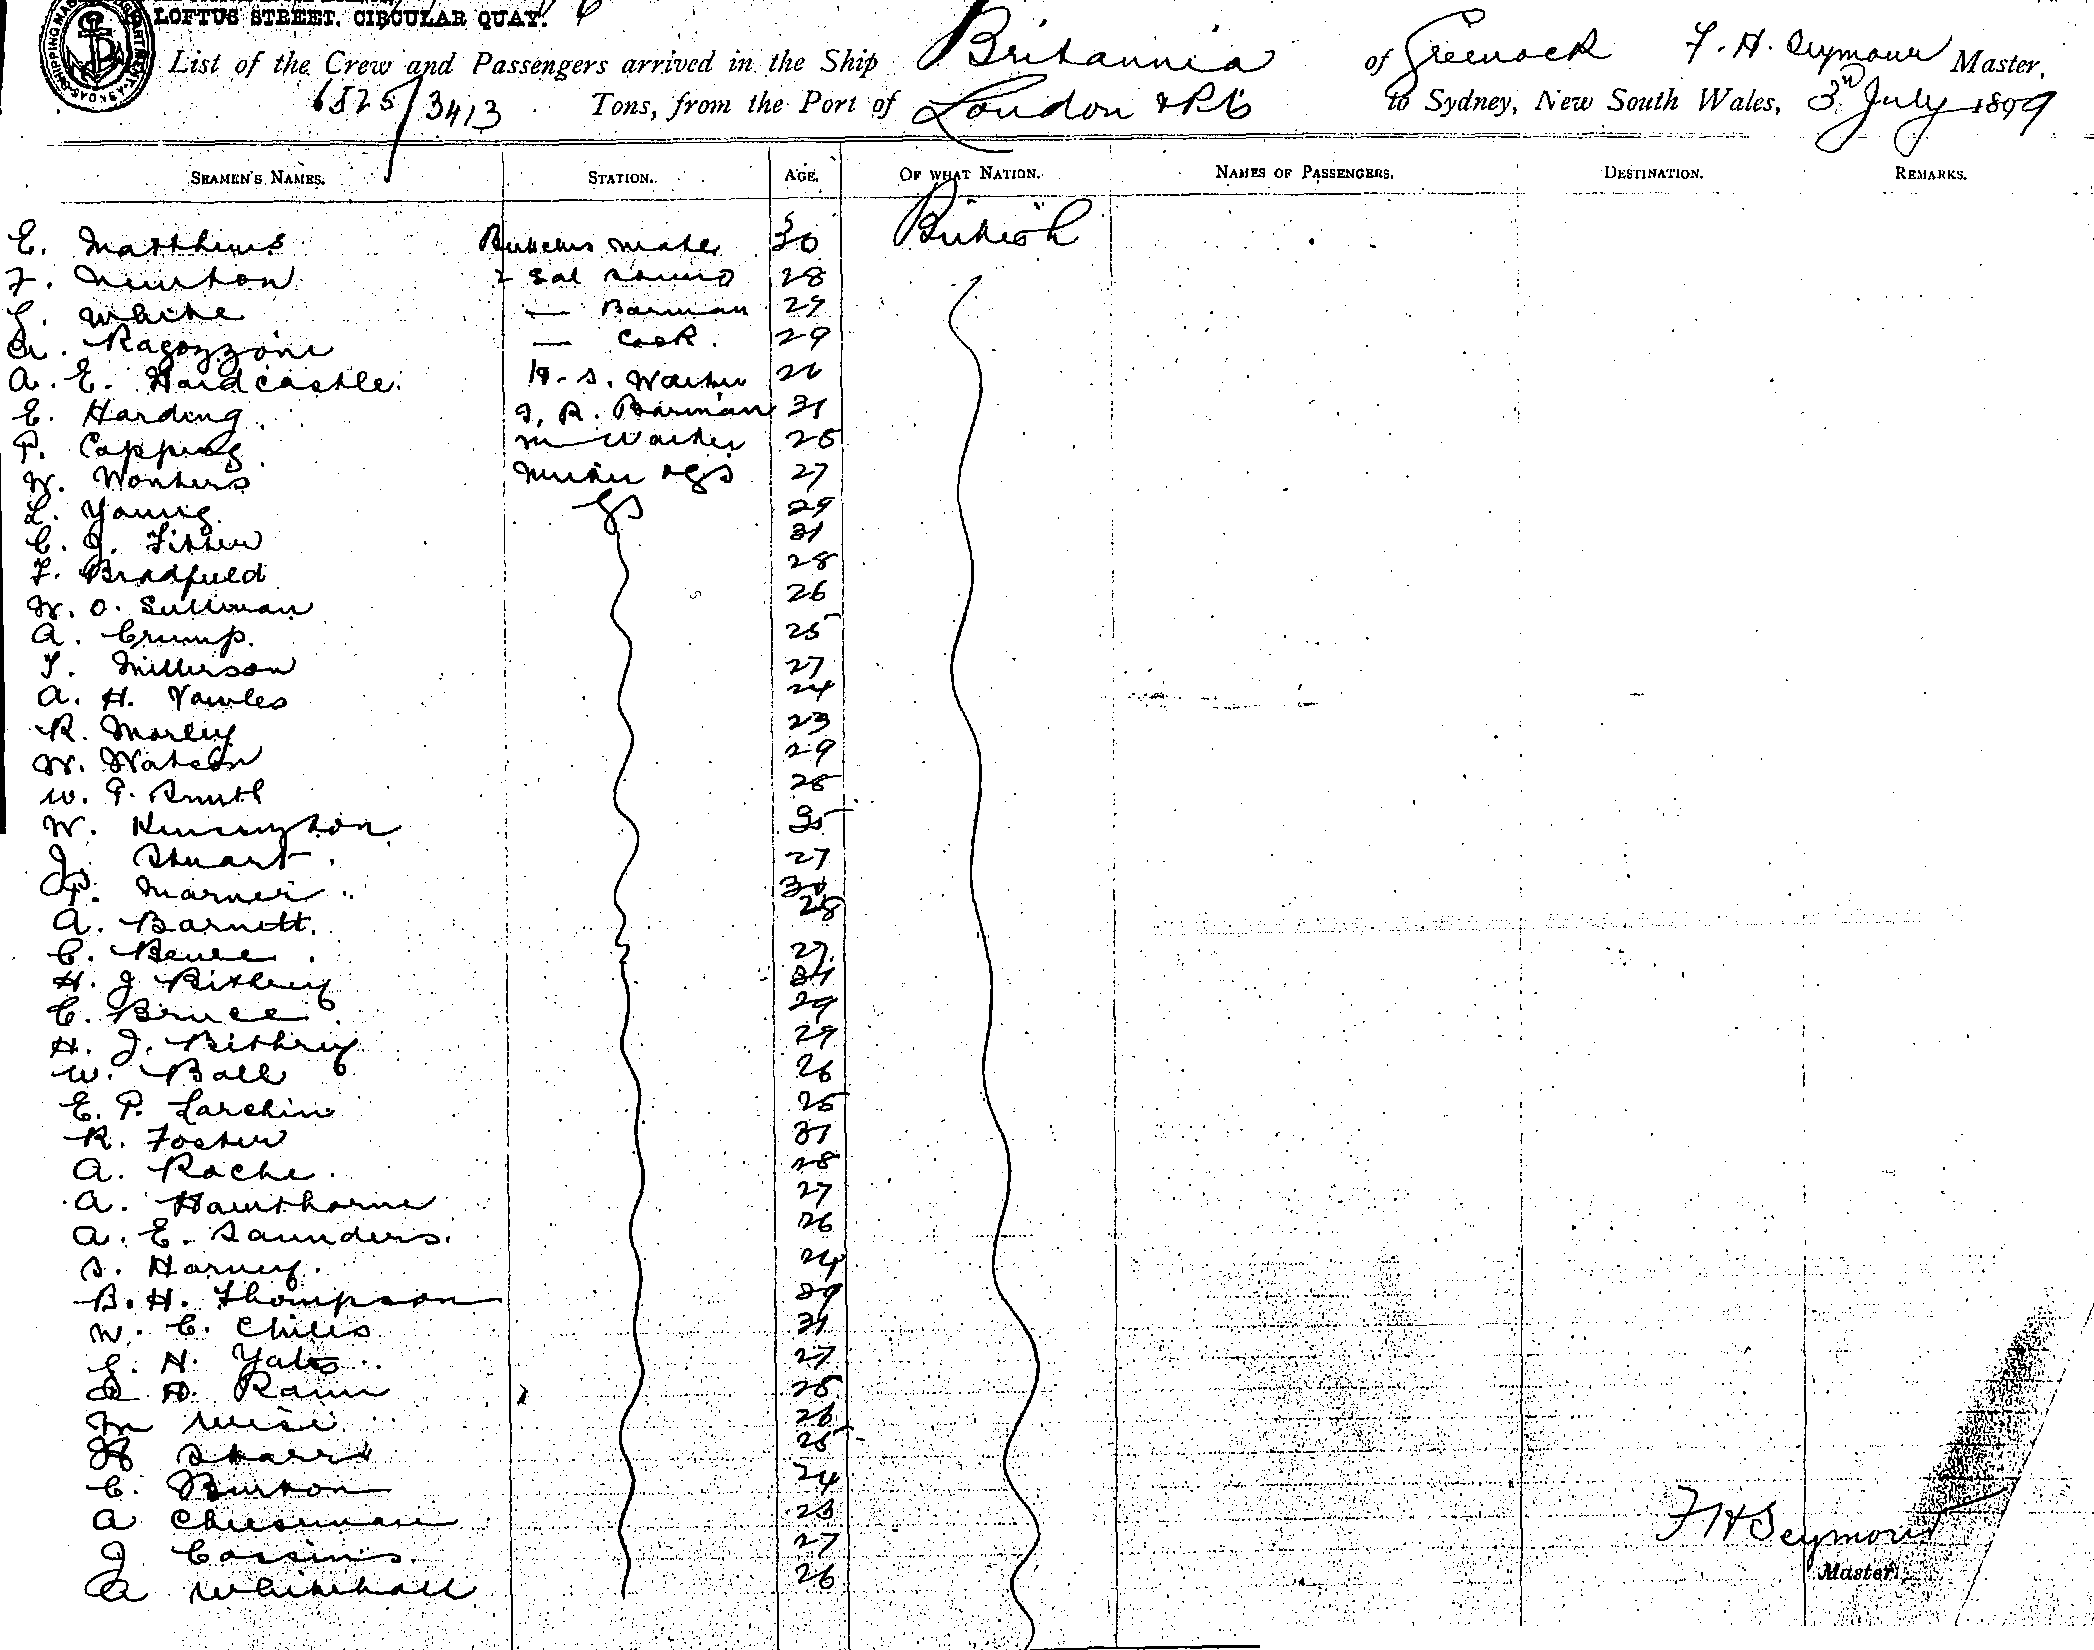 LOFTUS STREET, CIRCULAR QUAY.
List of the Crew and Passengers arrived in the Ship Britannia of Greenock F. H. Seymour Master,
6525/3413 Tons, from the Port of London & Pts to Sydney, New South Wales, 3rd July 1899
SEAMEN'S NAMES. STATION. AGE. OF WHAT NATION. NAMES OF PASSENGERS. DESTINATION. REMARKS.
E. Matthews Butchers mate 30 British
F. Newton 2 Sal 28
G. White — Barman 29
A. Ragozzoni — Cook. 29
A. E. Hardcastle. H. S. Waiter 26
E. Harding. S. R. Barman 31
P. Capping m Waiter 25
W. Wonters & GS 27
L. Young GS 29
C. J. Fitter 31
F. Bradfield 28
W. O. Sullivan 26
A. Crump. 25
T. Millerson 27
A. H. Vowles 24
R. Morley 23
W. Watson 29
W. P. Smith 28
W. Kennington
J. Stuart. 27
P. Marner 30
A. Barnett. 28
C. Bence 27
H. J. Bithrey 31
C. Bruce 29
H. J. Bithrey 29
W. Ball 26
E. P. Larchin 25
R. Foster 31
A. Roche. 28
A. Hawthorne 27
A. E. Saunders. 26
S. Harvey. 24
B. H. Thompson 29
W. C. Chiles 31
G. H. Yates 27
A. D. Rann 25
M Wise 26
H Starr 25
C. Burton 24
A Cheeseman 23
J Cossins. 27
A Whitehall 26
F H Seymour
Master.